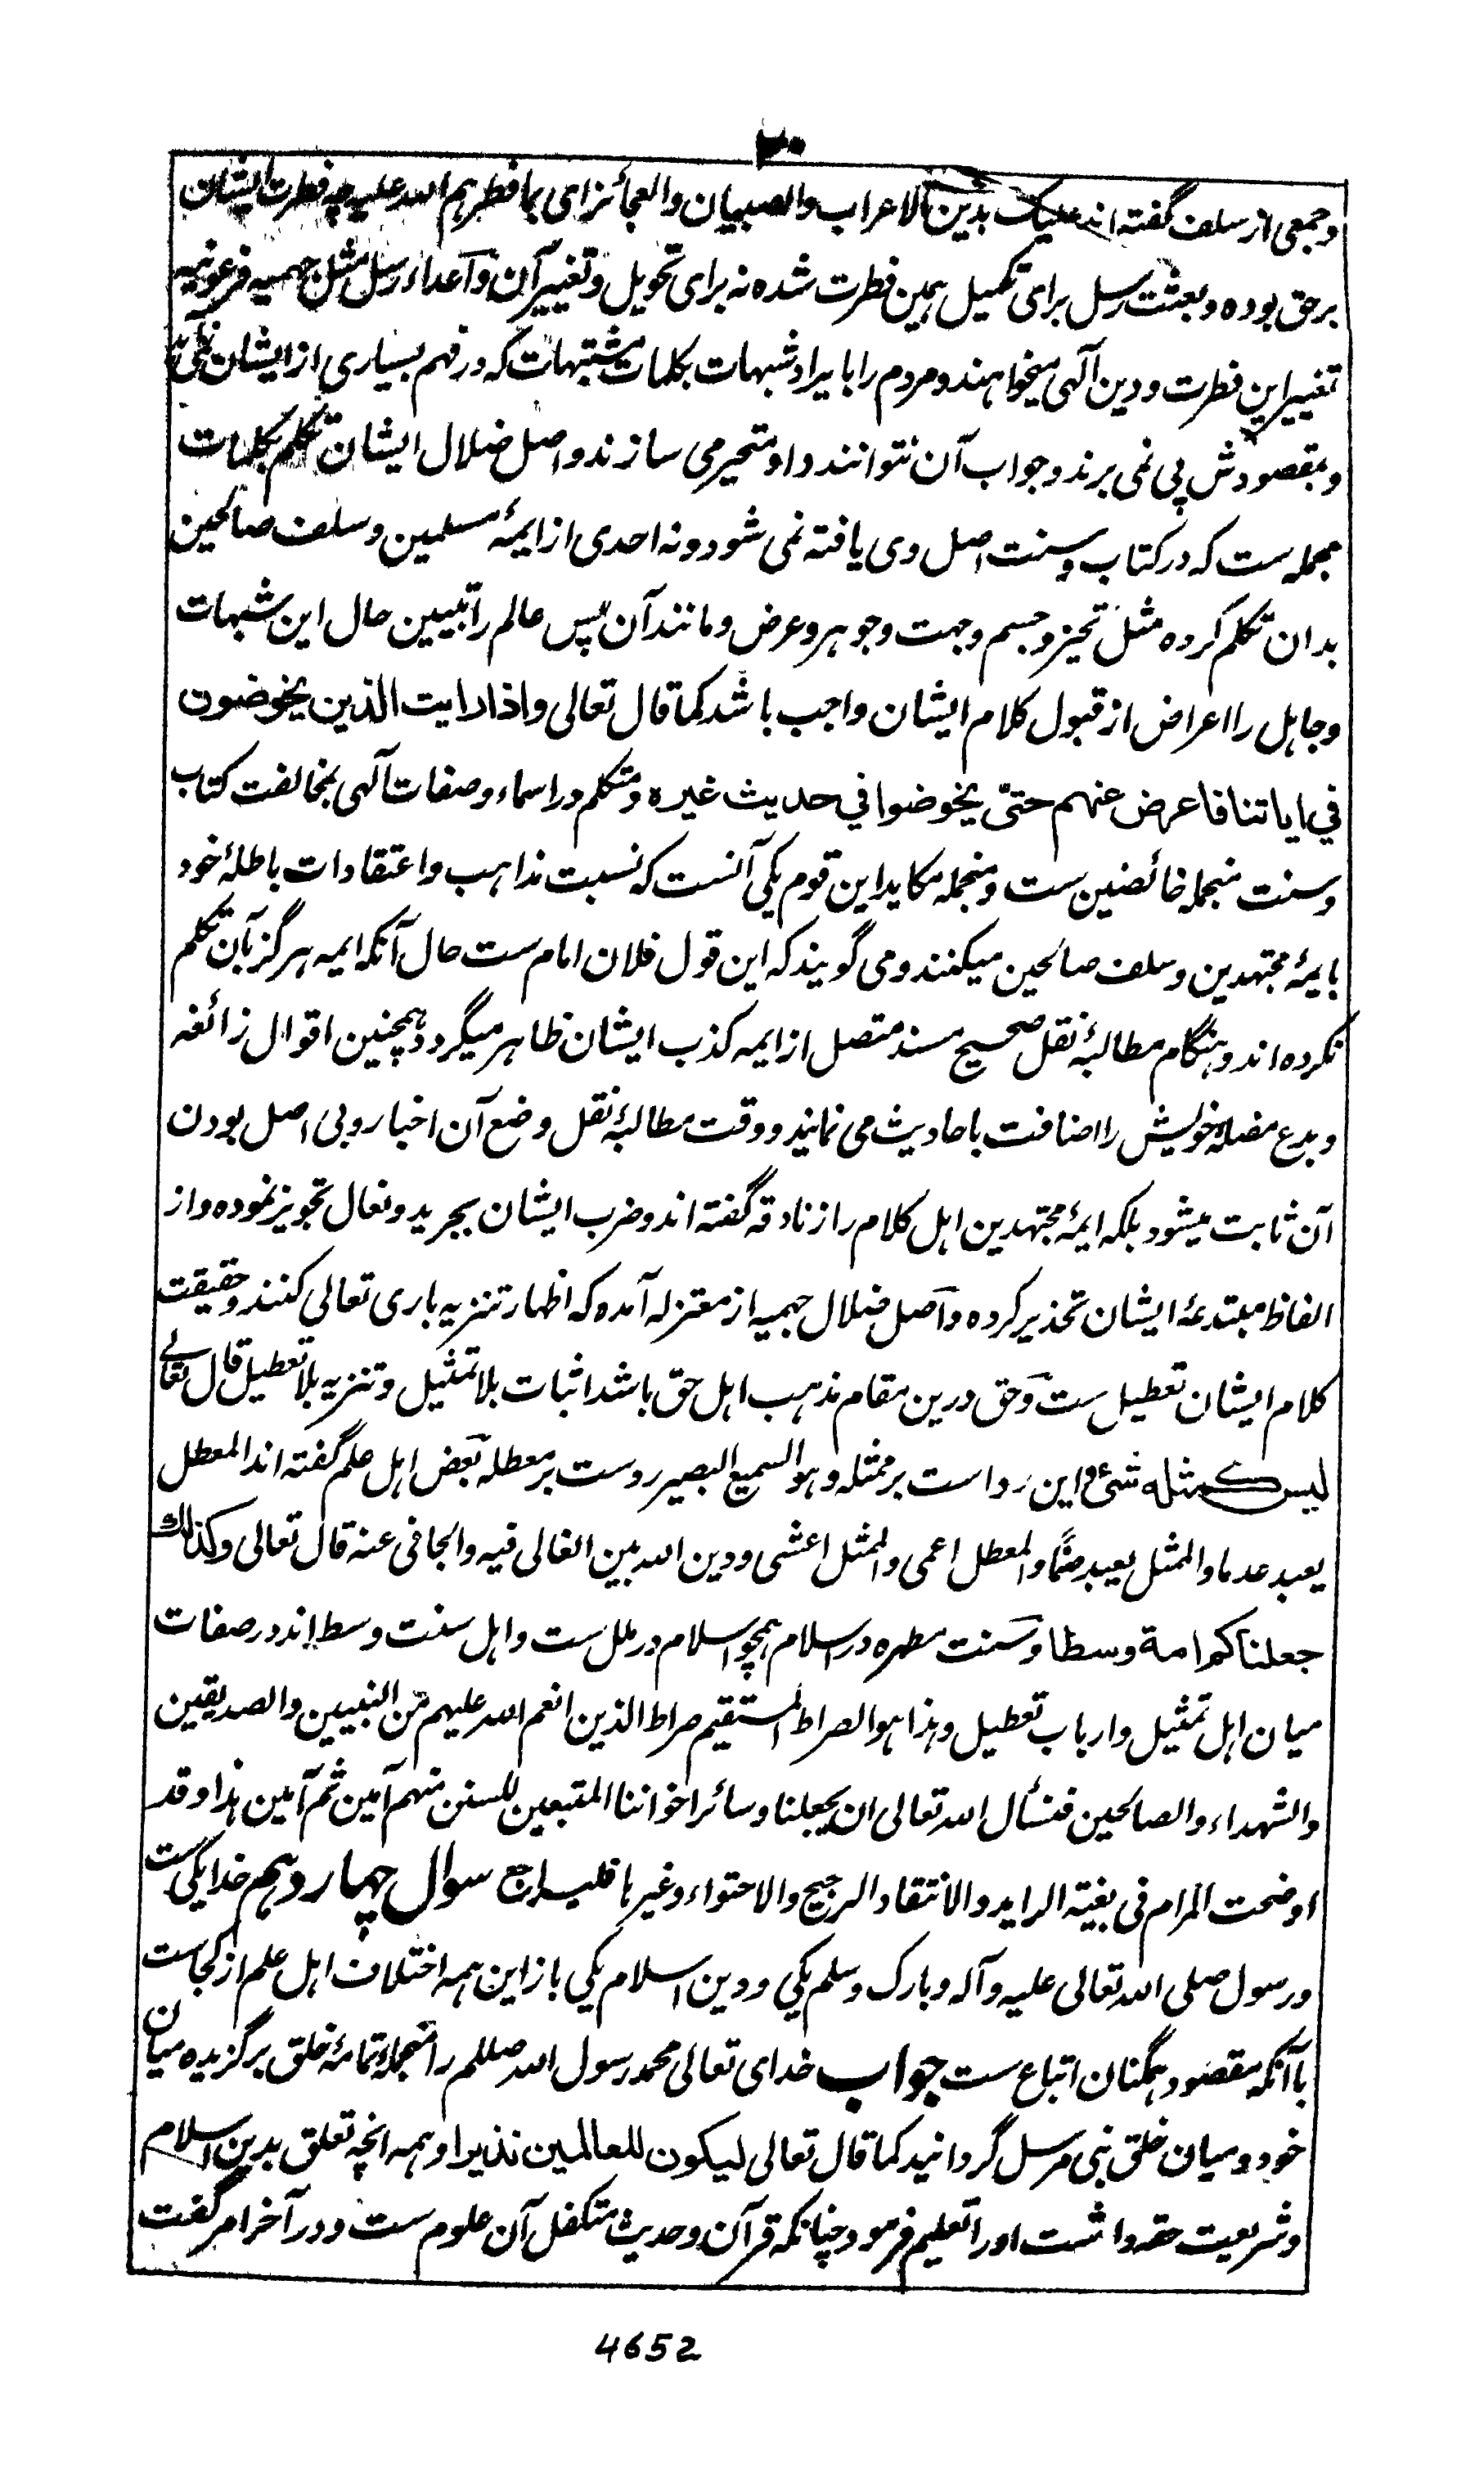 ۲۰
و جمعی از سلف گفته اند علیک بدین الاعراب والصبیان والعجائز ای بما فطرہم اللہ علیہ چہ فطرت ایشان
برحق بوده و بعثت رسل برای تکمیل ہمین فطرت شده نہ برای تحویل و تغییر آن و اعداء رسل مثل جہمیہ فرعونیہ
تغییر این فطرت و دین آلہی میخواہند و مردم را بایراد شبہات بکلمات مشتبہات که در فہم بسیاری از ایشان نمی آید
و بمقصودش پی نمی برند و جواب آن نتوانند داد متحیر می سازند و اصل ضلال ایشان تکلم بکلمات
مجملہ ست که در کتاب و سنت اصل وی یافتہ نمی شود و نہ احدی از ایمۂ مسلمین و سلف صالحین
بدان تکلم کرده مثل تحیز و جسم و جہت و جوہر و عرض و مانند آن پس عالم را تبیین حال این شبہات
و جاہل را اعراض از قبول کلام ایشان واجب باشد کما قال تعالی واذا رایت الذین یخوضون
في ایاتنا فاعرض عنہم حتیّ یخوضوا في حدیث غیرہ و متکلم در اسماء و صفات آلہی بمخالفت کتاب
و سنت منجملہ خائضین ست و منجملہ مکاید این قوم یکی آنست که نسبت مذاہب و اعتقادات باطلۂ خود
بایمۂ مجتہدین و سلف صالحین میکنند و می گویند که این قول فلان امام ست حال آنکہ ایمہ ہرگز بآن تکلم
نکرده اند و ہنگام مطالبۂ نقل صحیح مسند متصل از ایمہ کذب ایشان ظاہر میگردد و ہمچنین اقوال زائغہ
و بدع مضلۂ خویش را اضافت باحادیث می نمایند و وقت مطالبۂ نقل وضع آن اخبار و بی اصل بودن
آن ثابت میشود بلکہ ایمۂ مجتہدین اہل کلام را زنادقہ گفتہ اند و ضرب ایشان بجرید و نعال تجویز نموده و از
الفاظ مبتدعۂ ایشان تحذیر کرده و اصل ضلال جہمیہ از معتزلہ آمده که اظہار تنزیہ باری تعالی کنند و حقیقت
کلام ایشان تعطیل ست و حق درین مقام مذہب اہل حق باشد اثبات بلا تمثیل و تنزیہ بلا تعطیل قال تعالے
لیس کمثلہ شئ و این رد است بر ممثلہ و ہو السمیع البصیر رد ست بر معطلہ بعض اہل علم گفتہ اند المعطل
یعبد عدما والممثل یعبد صنما والمعطل اعمی والممثل اعشی و دین اللہ بین الغالی فیہ والجافی عنہ قال تعالی وکذالک
جعلناکم امة وسطا و سنت مطہرہ در اسلام ہمچو اسلام در ملل ست و اہل سنت وسط اند در صفات
میان اہل تمثیل و ارباب تعطیل و ہذا ہو الصراط المستقیم صراط الذین انعم اللہ علیہم من النبیین والصدیقین
والشہداء والصالحین فنسأل اللہ تعالی ان یجعلنا وسائر اخواننا المتبعین للسنن منہم آمین ثم آمین ہذا و قد
اوضحت المرام فی بغیۃ الراید والانتقاد الرجیح والاحتواء و غیرہا فلیراجع سوال چہاردہم خدا یکی ست
و رسول صلی اللہ تعالی علیہ و آلہ و بارک وسلم یکی و دین اسلام یکی باز این ہمہ اختلاف اہل علم از کجاست
با آنکہ مقصود ہمگنان اتباع ست جواب خدای تعالی محمد رسول اللہ صللم را منجملۂ تمامۂ خلق برگزیده میان
خود و میان خلق نبی مرسل گردانید کما قال تعالی لیکون للعالمین نذیرا و ہمہ انچہ تعلق بدین اسلام
و شریعت حقہ داشت او را تعلیم فرمود چنانکہ قرآن و حدیث متکفل آن علوم ست و در آخر امر گفت
4652